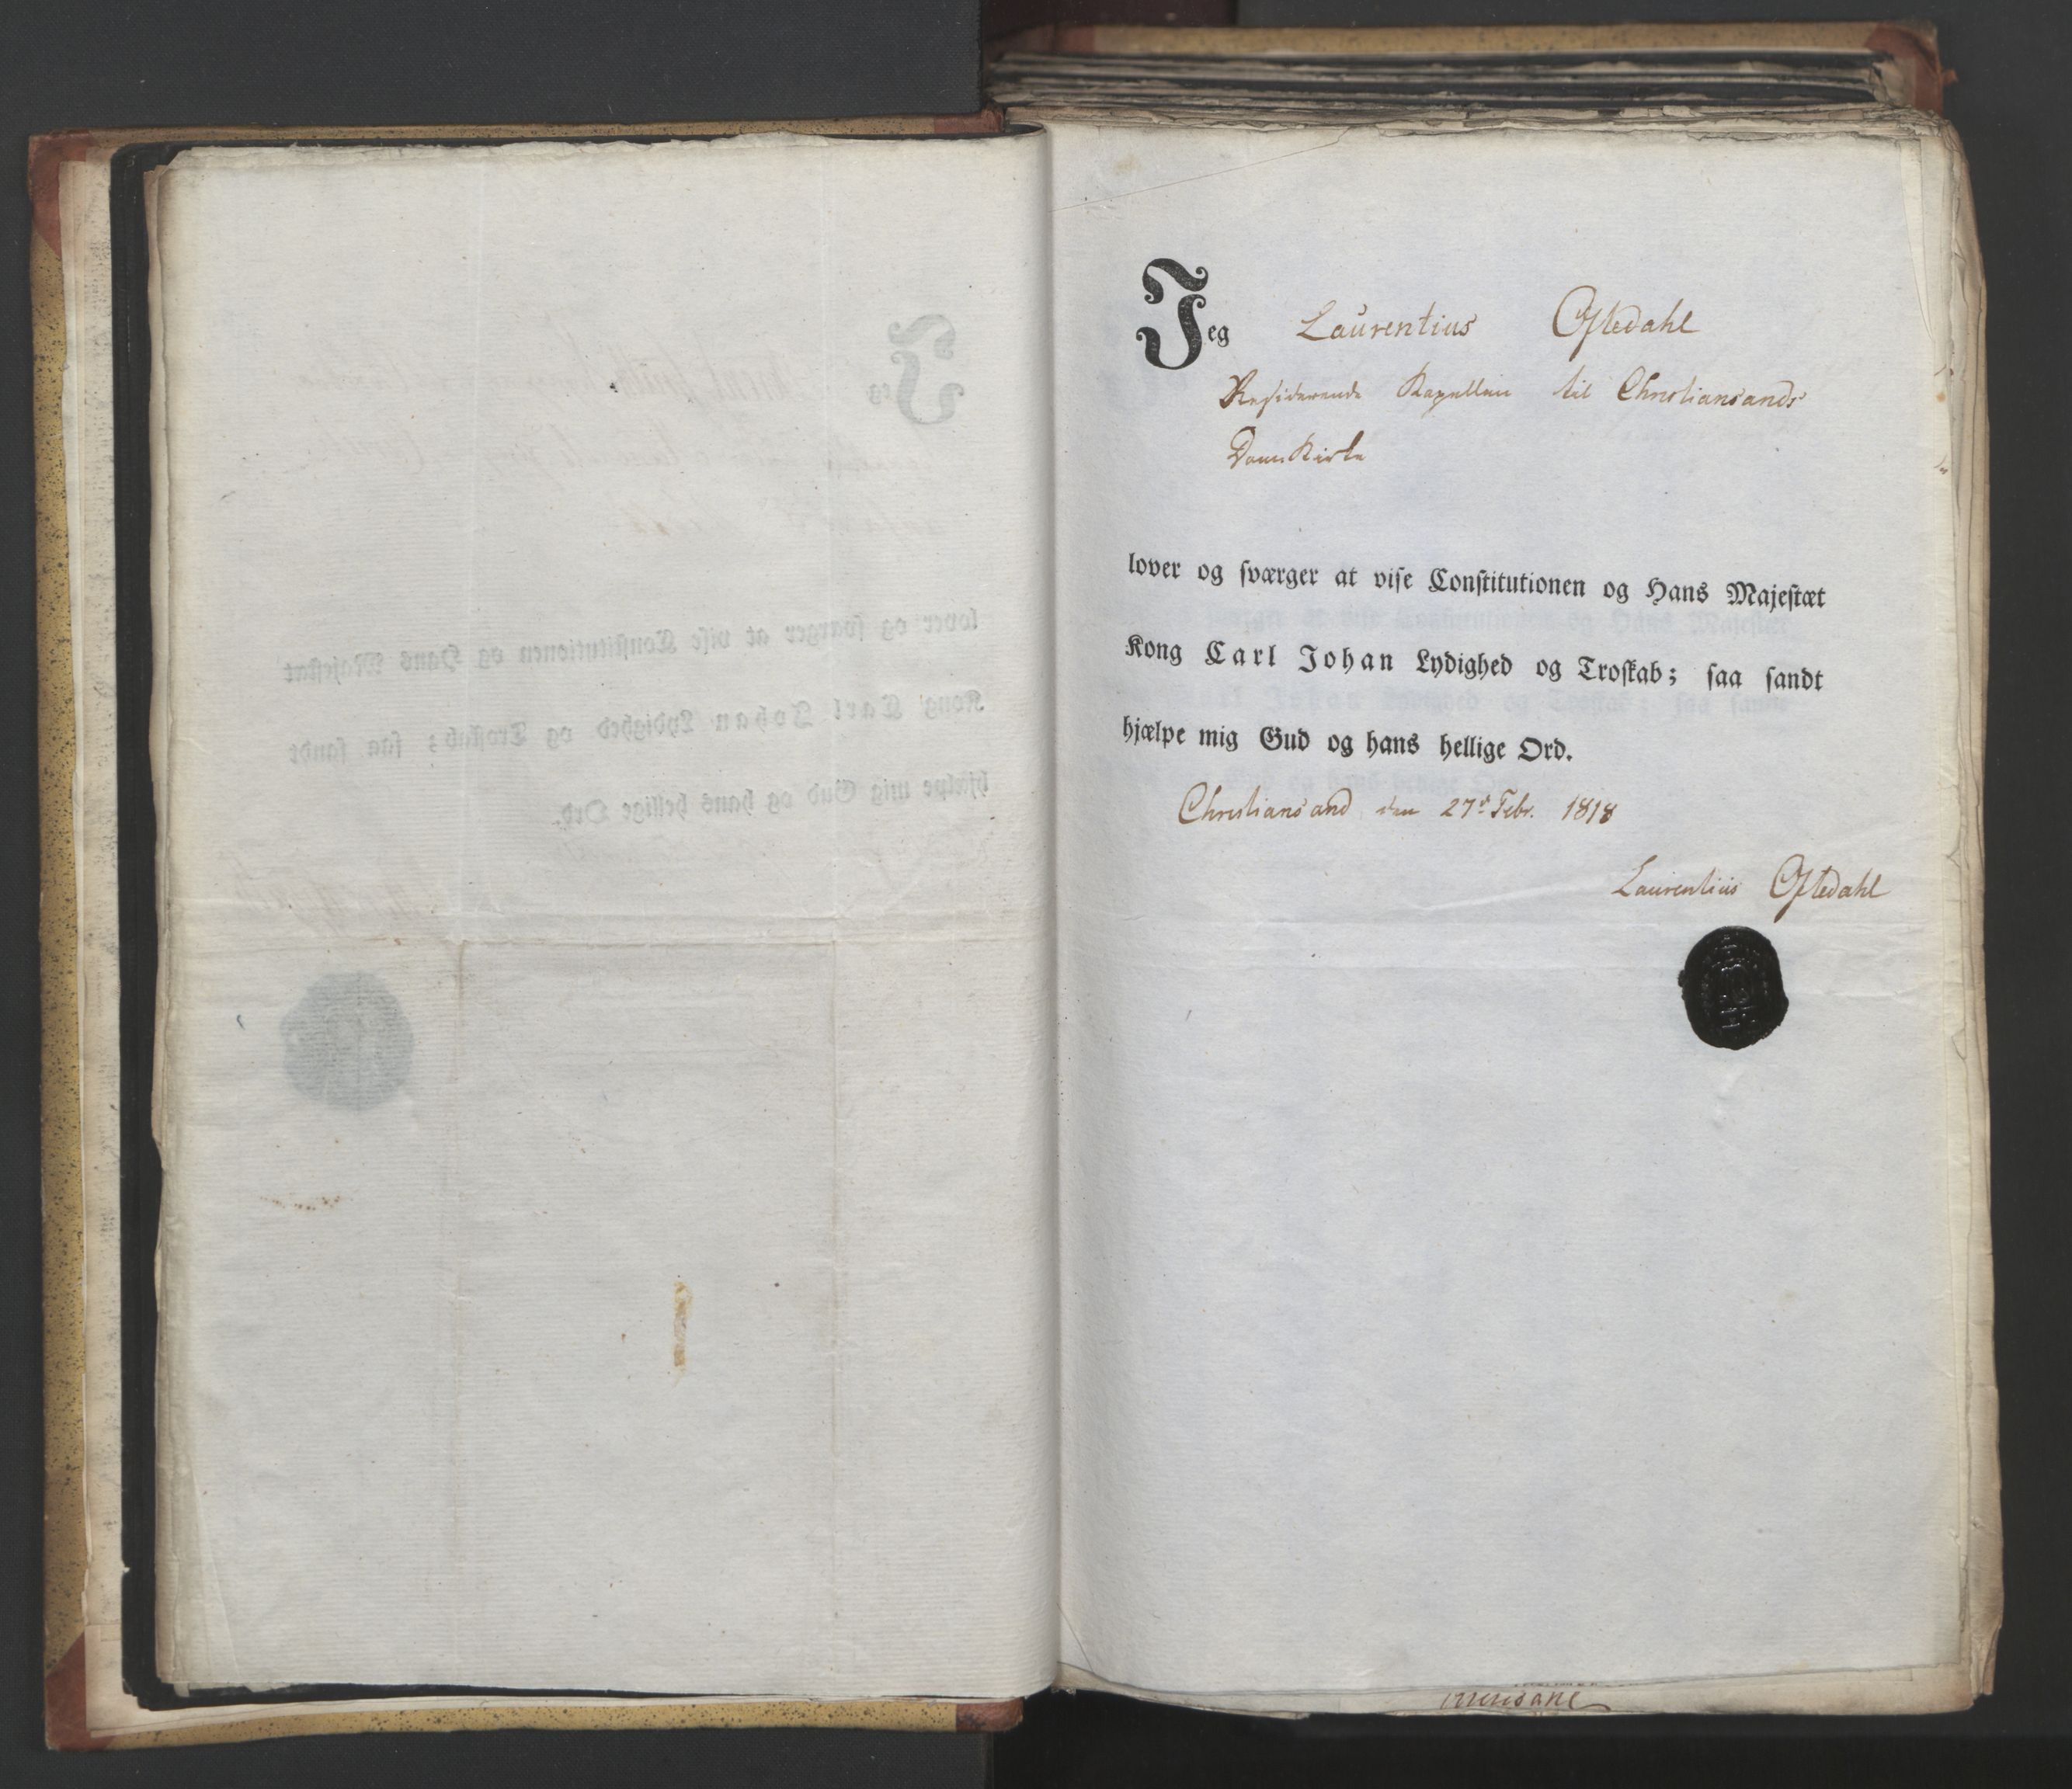 Jeg Laurentius Oftedahl
Residerende Kapellan til Christiansands
DomKirke
lover og sværger at vise Constitutionen og Hans Majestæt
Kong Carl Johan Lydighed og Troskab; saa sandt
hjælpe mig Gud og hans hellige Ord.
Christiansand den 27d Febr. 1818
Laurentius Oftedahl